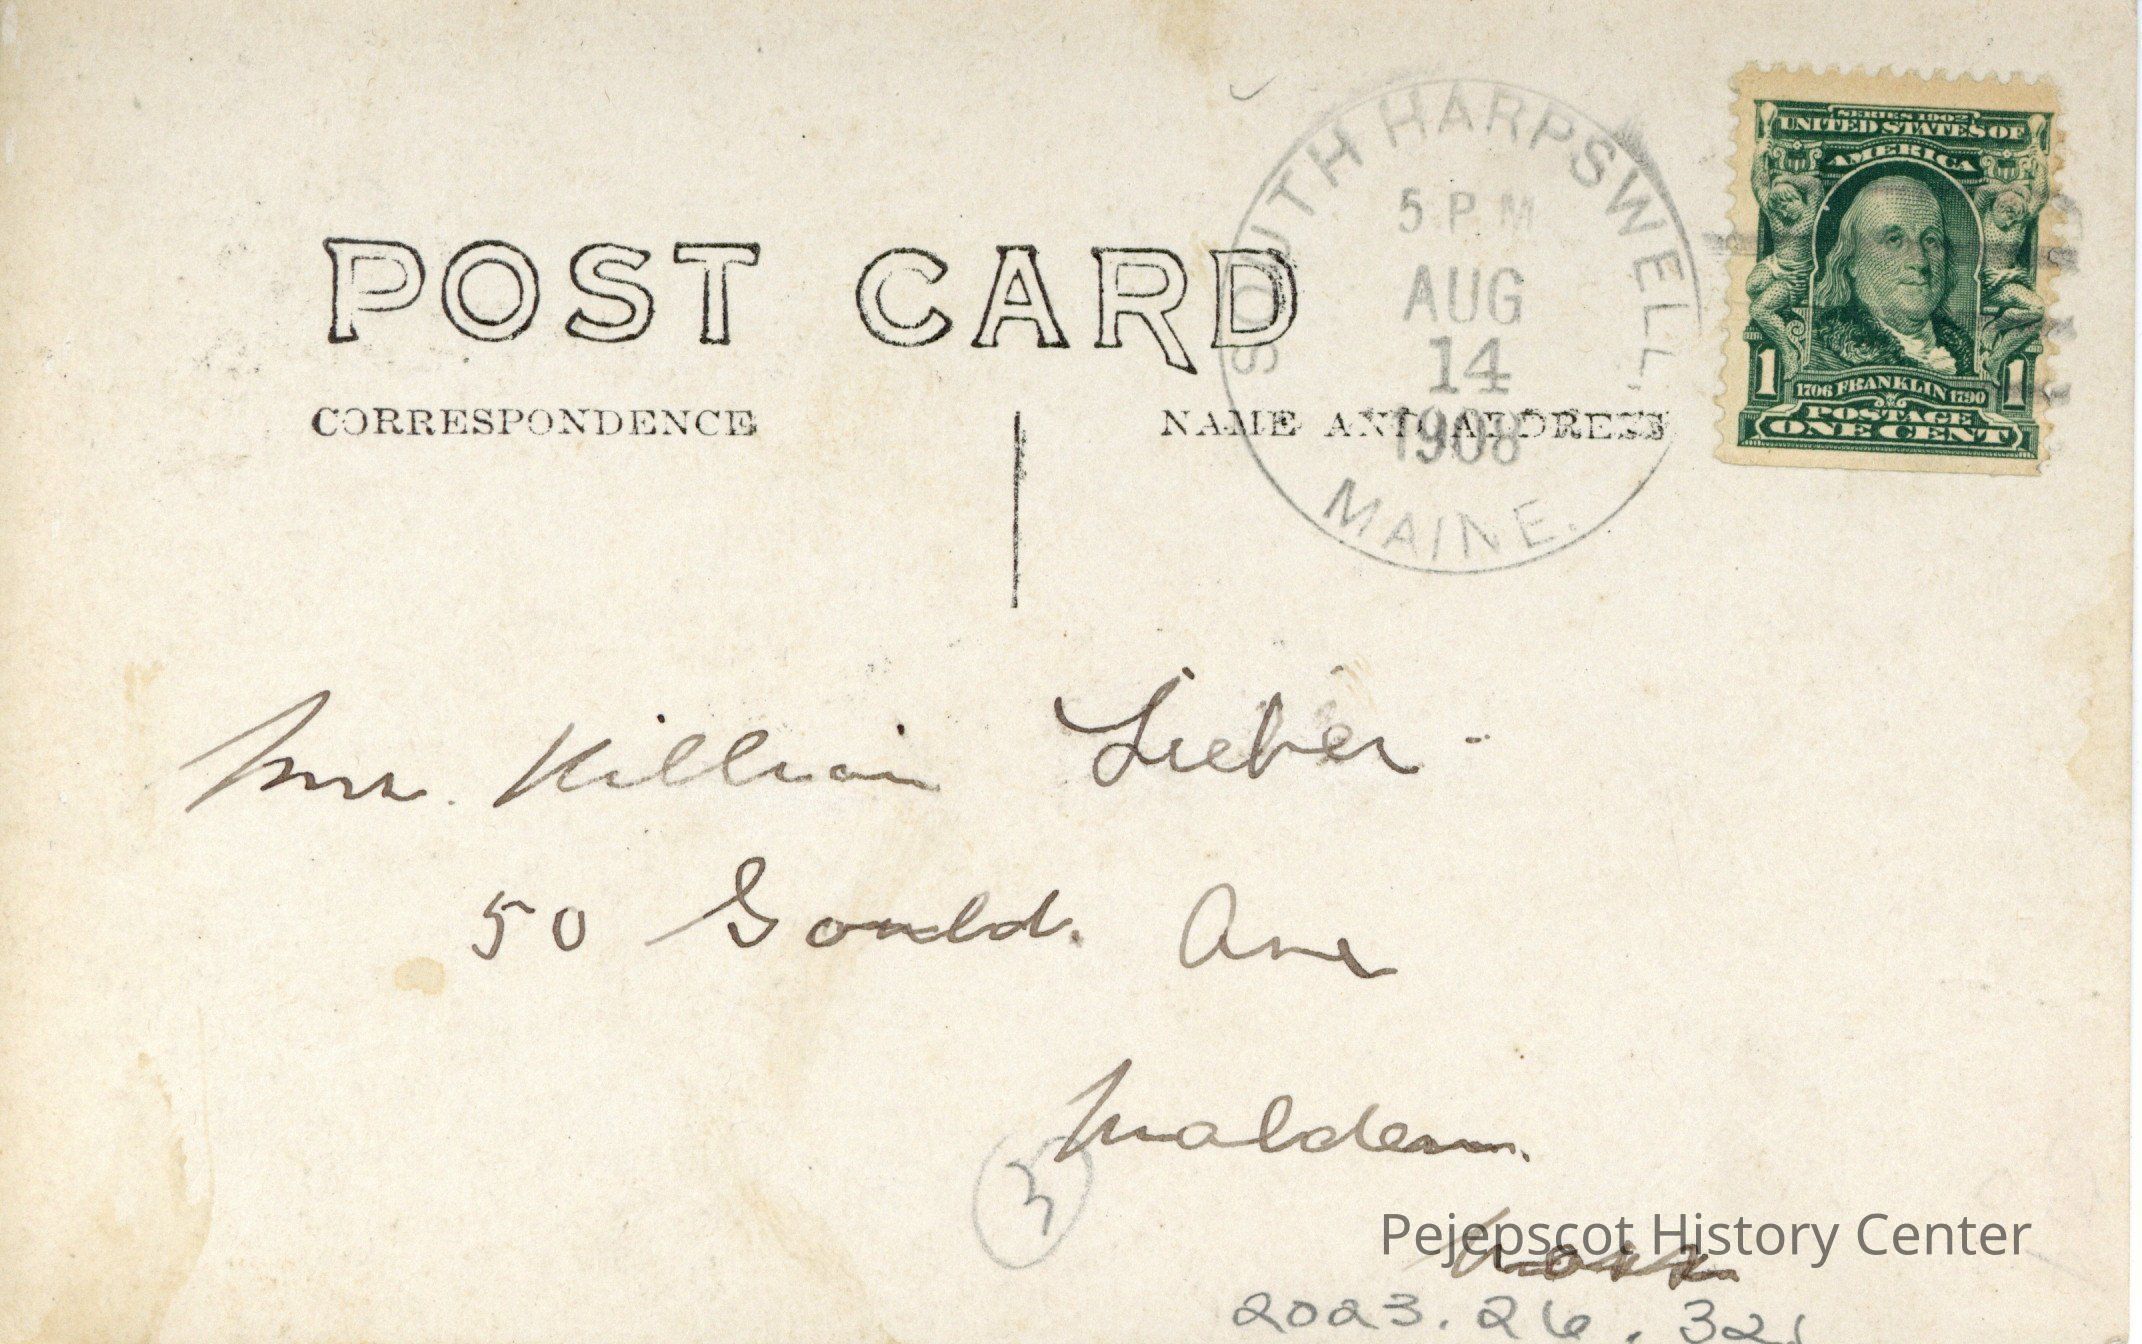 POST CARD
CORRESPONDENCE
NAME AND ADDRESS
SOUTH HARPSWELL,
5 PM
AUG
14
1908
MAINE.
SERIES 1902
UNITED STATES OF
AMERICA
1 1706 FRANKLIN 1790 1
POSTAGE
ONE CENT
Mrs. Killian Lieber
50 Gould. Ave
Malden.
Mass
3
Pejepscot History Center
2023.26.321